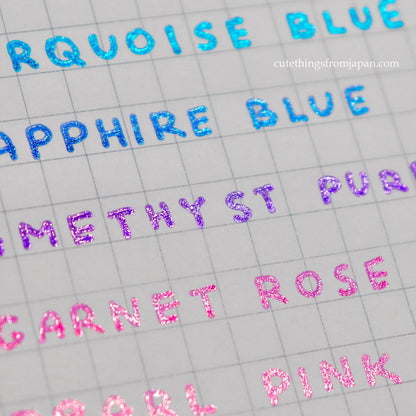 RQUOISE BLUE
cutethingsfromjapan.com
APPHIRE BLUE
METHYST PUR
GARNET ROSE
EARL PINK